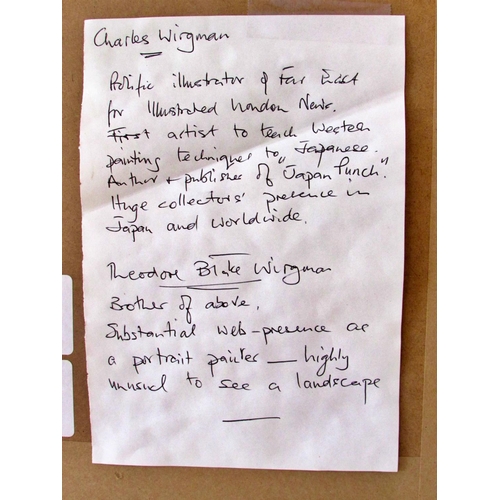 Charles Wirgman
Prolific illustrator of Far East
for Illustrated London News.
First artist to teach Western
painting techniques to Japanese.
Author + publisher of "Japan Punch".
Huge collectors' presence in
Japan and worldwide.
Theodore Blake Wirgman
Brother of above.
Substantial web-presence as
a portrait painter — highly
unusual to see a landscape